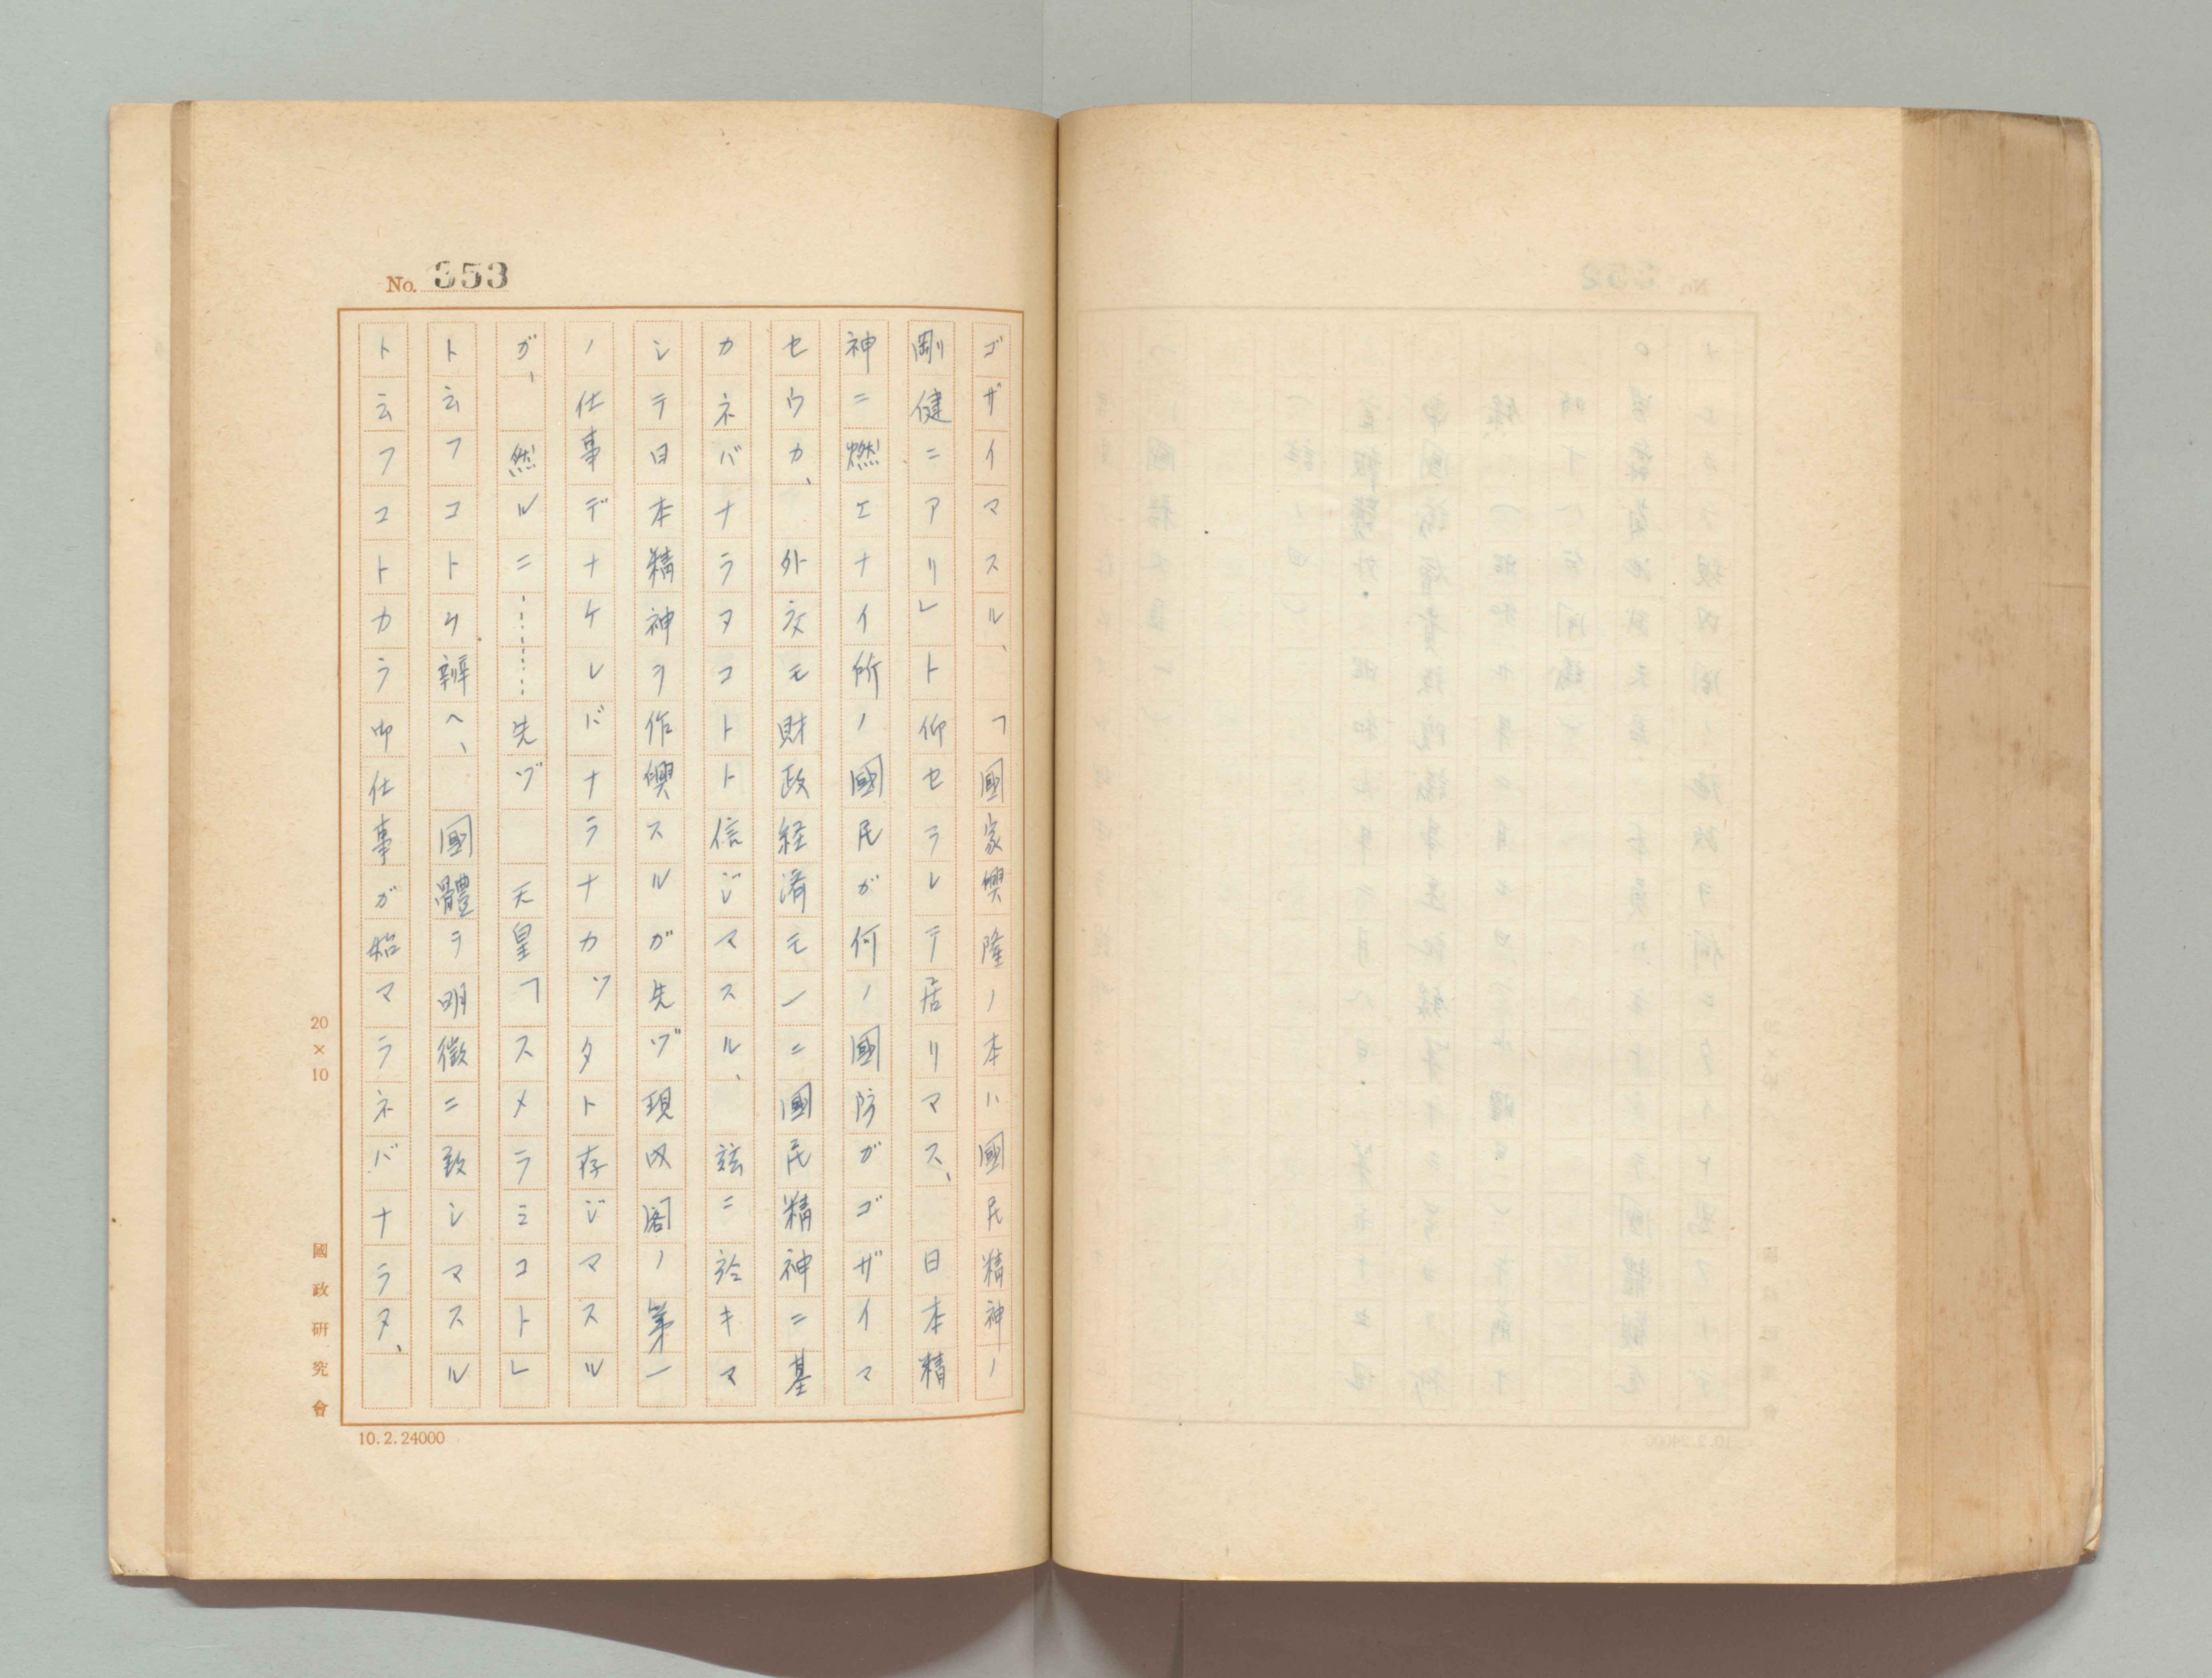 No. 353
ゴザイマスル、「國家興隆ノ本ハ國民精神ノ
剛健ニアリ」ト仰セラレテ居リマス、日本精
神ニ燃エナイ所ノ國民ガ何ノ國防ガゴザイマ
セウカ、外交モ財政経済モ一ニ國民精神ニ基
カネバナラヌコトト信ジマスル、茲ニ於キマ
シテ日本精神ヲ作興スルガ先ヅ現内閣ノ第一
ノ仕事デナケレバナラナカツタト存ジマスル
ガ、然ルニ……先ヅ 天皇「スメラミコト」
ト云フコトヲ辨ヘ、國體ヲ明徴ニ致シマスル
ト云フコトカラ御仕事ガ始マラネバナラヌ、
20×10
國政研究會
10.2.24000